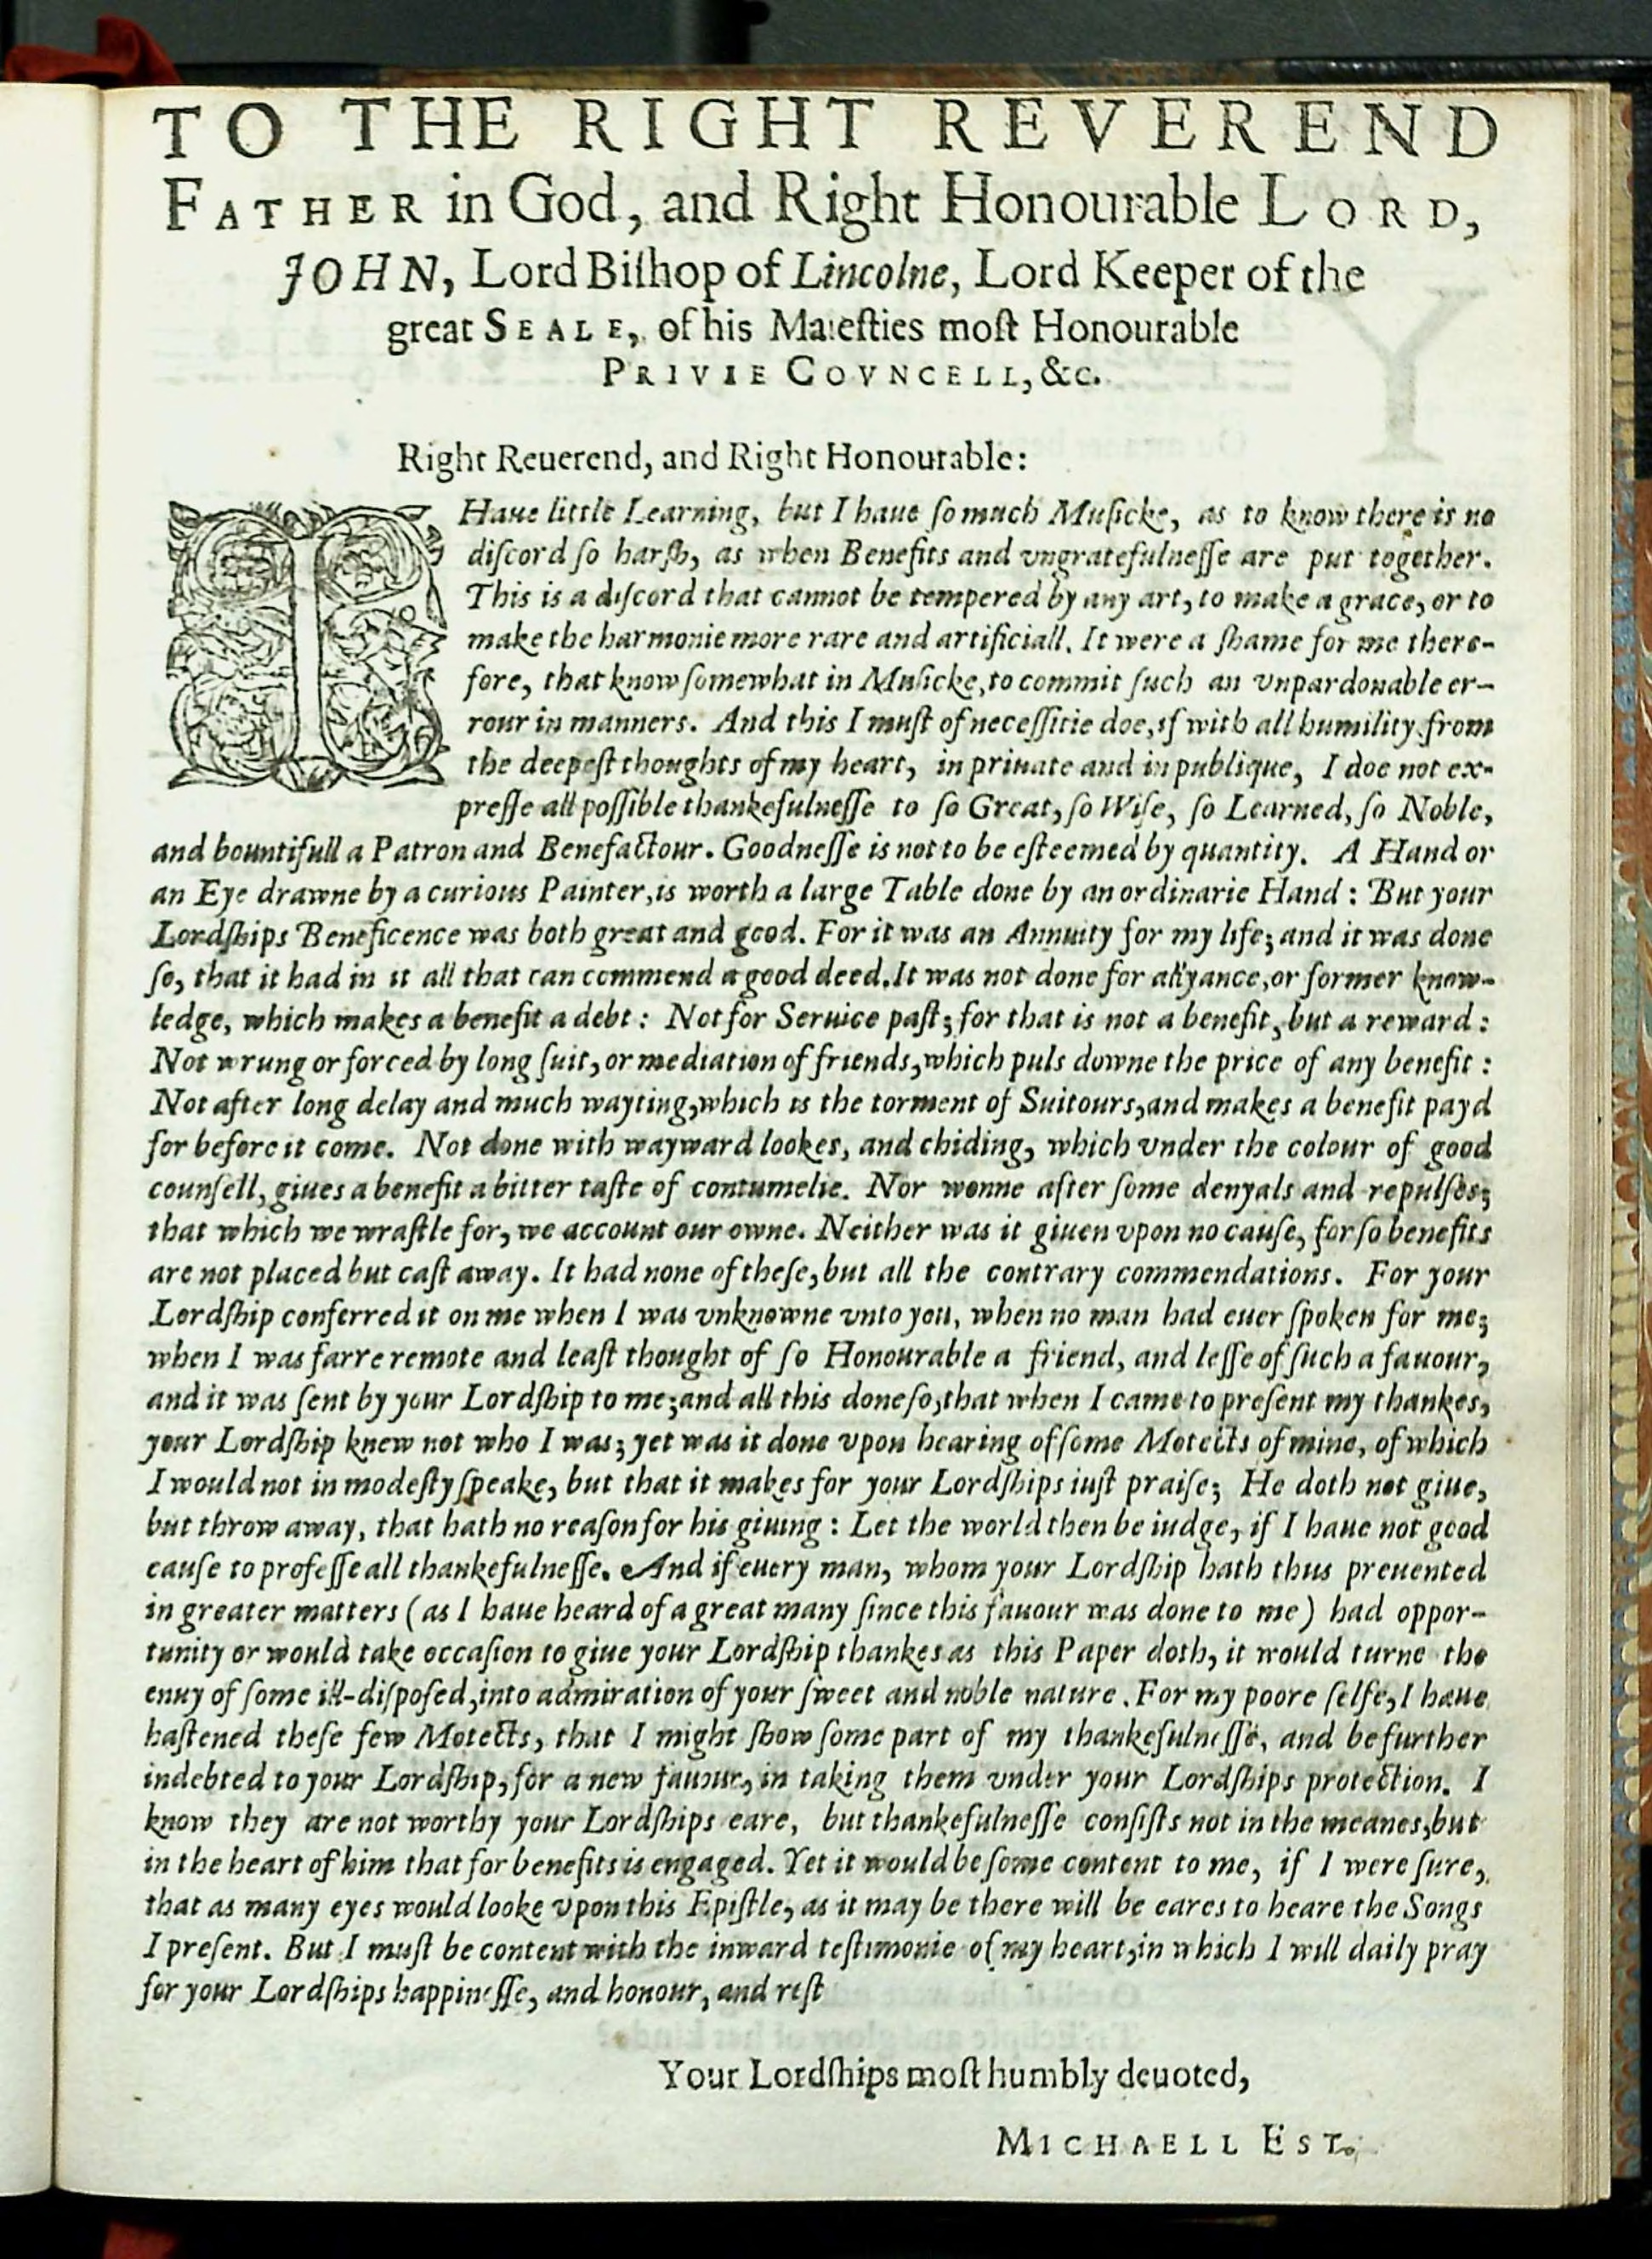 TO THE RIGHT REVEREND
FATHER in God, and Right Honourable LORD,
JOHN, Lord Biſhop of Lincolne, Lord Keeper of the
great SEALE, of his Maieſties moſt Honourable
PRIVIE COVNCELL, &c.
Right Reuerend, and Right Honourable:
I Haue little Learning, but I haue ſo much Muſicke, as to know there is no
diſcord ſo harſh, as when Benefits and vngratefulneſſe are put together.
This is a diſcord that cannot be tempered by any art, to make a grace, or to
make the harmonie more rare and artificiall. It were a ſhame for me there-
fore, that know ſomewhat in Muſicke, to commit ſuch an vnpardonable er-
rour in manners. And this I muſt of neceſſitie doe, if with all humility from
the deepeſt thoughts of my heart, in priuate and in publique, I doe not ex-
preſſe all poſſible thankefulneſſe to ſo Great, ſo Wiſe, ſo Learned, ſo Noble,
and bountifull a Patron and Benefactour. Goodneſſe is not to be eſteemed by quantity. A Hand or
an Eye drawne by a curious Painter, is worth a large Table done by an ordinarie Hand : But your
Lordſhips Beneficence was both great and good. For it was an Annuity for my life; and it was done
ſo, that it had in it all that can commend a good deed. It was not done for allyance, or former know-
ledge, which makes a benefit a debt : Not for Seruice paſt; for that is not a benefit, but a reward :
Not wrung or forced by long ſuit, or mediation of friends, which puls downe the price of any benefit :
Not after long delay and much wayting, which is the torment of Suitours, and makes a benefit payd
for before it come. Not done with wayward lookes, and chiding, which vnder the colour of good
counſell, giues a benefit a bitter taſte of contumelie. Nor wonne after ſome denyals and repulſes;
that which we wraſtle for, we account our owne. Neither was it giuen vpon no cauſe, for ſo benefits
are not placed but caſt away. It had none of theſe, but all the contrary commendations. For your
Lordſhip conferred it on me when I was vnknowne vnto you, when no man had euer ſpoken for me;
when I was farre remote and leaſt thought of ſo Honourable a friend, and leſſe of ſuch a fauour,
and it was ſent by your Lordſhip to me; and all this done ſo, that when I came to preſent my thankes,
your Lordſhip knew not who I was; yet was it done vpon hearing of ſome Motects of mine, of which
I would not in modeſty ſpeake, but that it makes for your Lordſhips iuſt praiſe; He doth not giue,
but throw away, that hath no reaſon for his giuing : Let the world then be iudge, if I haue not good
cauſe to profeſſe all thankefulneſſe. And if euery man, whom your Lordſhip hath thus preuented
in greater matters (as I haue heard of a great many ſince this fauour was done to me) had oppor-
tunity or would take occaſion to giue your Lordſhip thankes as this Paper doth, it would turne the
enuy of ſome ill-diſpoſed, into admiration of your ſweet and noble nature. For my poore ſelfe, I haue
haſtened theſe few Motects, that I might ſhow ſome part of my thankefulneſſe, and be further
indebted to your Lordſhip, for a new fauour, in taking them vnder your Lordſhips protection. I
know they are not worthy your Lordſhips eare, but thankefulneſſe conſiſts not in the meanes, but
in the heart of him that for benefits is engaged. Yet it would be ſome content to me, if I were ſure,
that as many eyes would looke vpon this Epiſtle, as it may be there will be eares to heare the Songs
I preſent. But I muſt be content with the inward teſtimonie of my heart, in which I will daily pray
for your Lordſhips happineſſe, and honour, and reſt
Your Lordſhips moſt humbly deuoted,
MICHAELL EST.